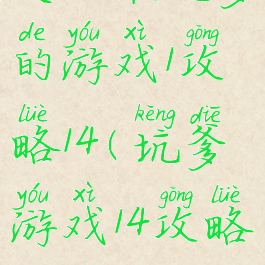 de yóu xì gōng
的游戏1攻
lüè kēng diē
略14(坑爹
yóu xì gōng lüè
游戏14攻略